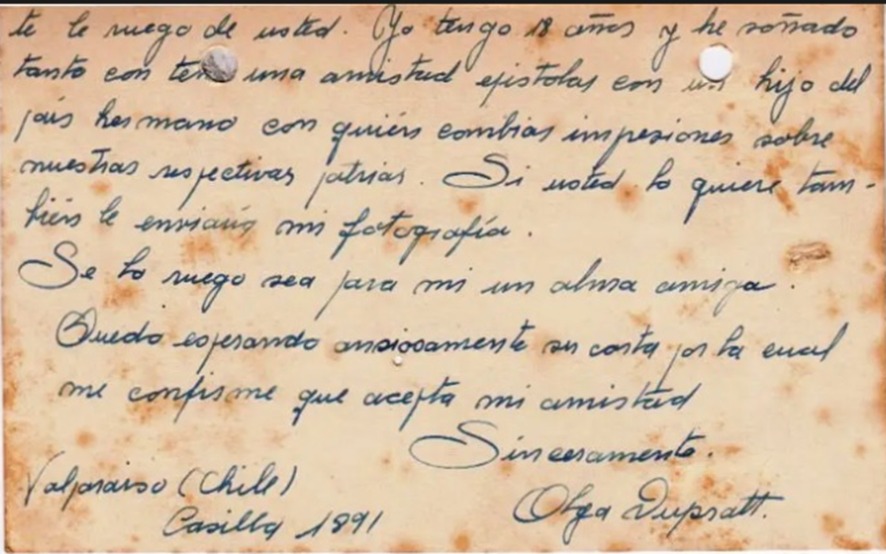 te le ruego de usted. Yo tengo 18 años y he soñado
tanto con tener una amistad epistolar con un hijo del
país hermano con quién cambiar impresiones sobre
nuestras respectivas patrias. Si usted lo quiere tam-
bién le enviaré mi fotografía.
Se lo ruego sea para mi un alma amiga.
Quedo esperando ansiosamente su carta por la cual
me confirme que acepta mi amistad
Sinceramente.
Valparaiso (Chile)
Olga Dupratt.
Casilla 1891